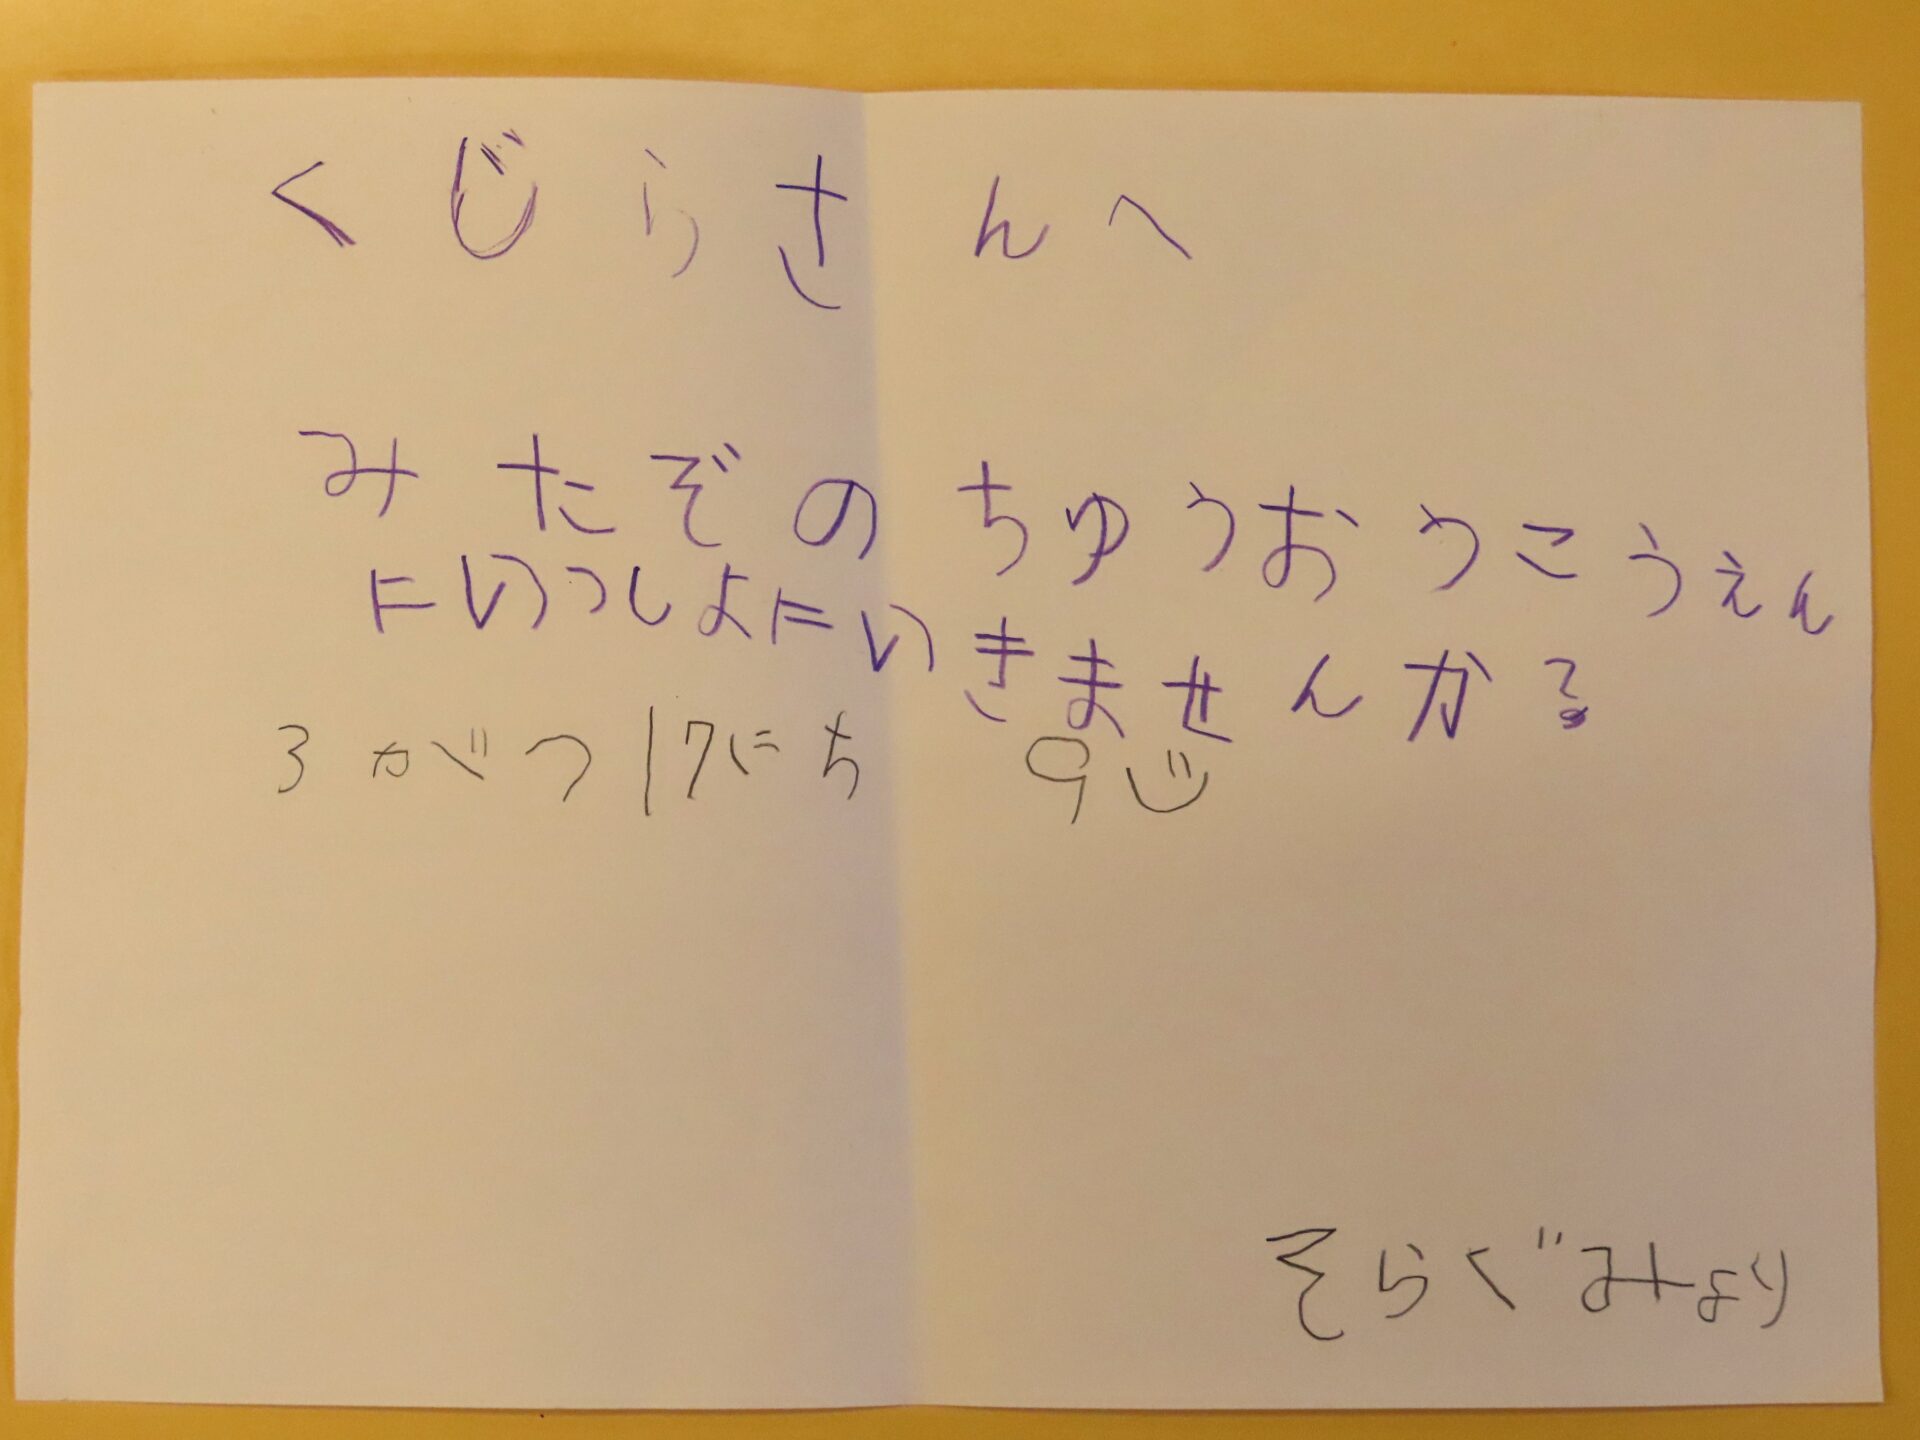 くじらさんへ
みたぞのちゅうおうこうえん
にいっしょにいきませんか?
3がつ17にち 9じ
そらぐみより